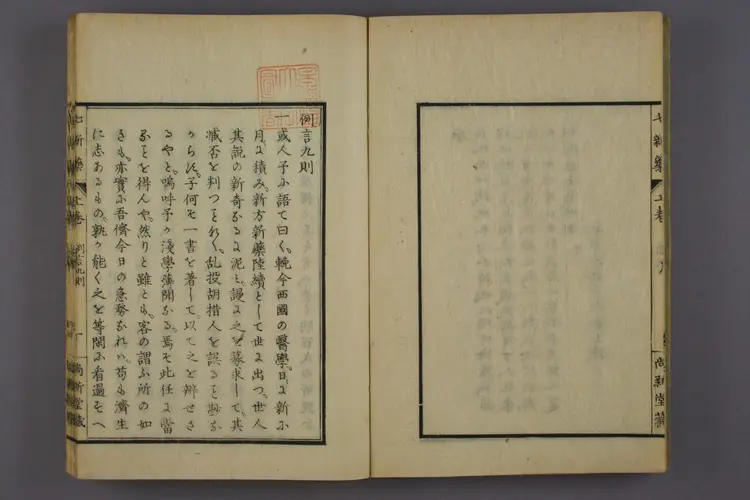 例言九則
一或人予ニ語テ曰く、輓今西國の醫學、日ニ新ニ
月ニ積み、新方新藥陸續として世ニ出つ。世人
其説の新奇なるニ泥ミ、謾ニ之を募求して、其
臧否を判つことなく、乱投胡措人を誤ること尠な
からす。子何そ一書を著して、以て之を辨せさ
るやと。嗚呼予の淺學薄聞なる。焉そ此任ニ當
ることを得んや。然りと雖とも、客の謂ふ所の如
きも、亦實ニ吾儕今日の急務なれハ、苟も濟生
に志あるもの。孰か能く之を等閑ニ看過すへ
七新藥
上卷
例言九則
一
尚新堂藏
七新藥
上卷
尚新堂藏